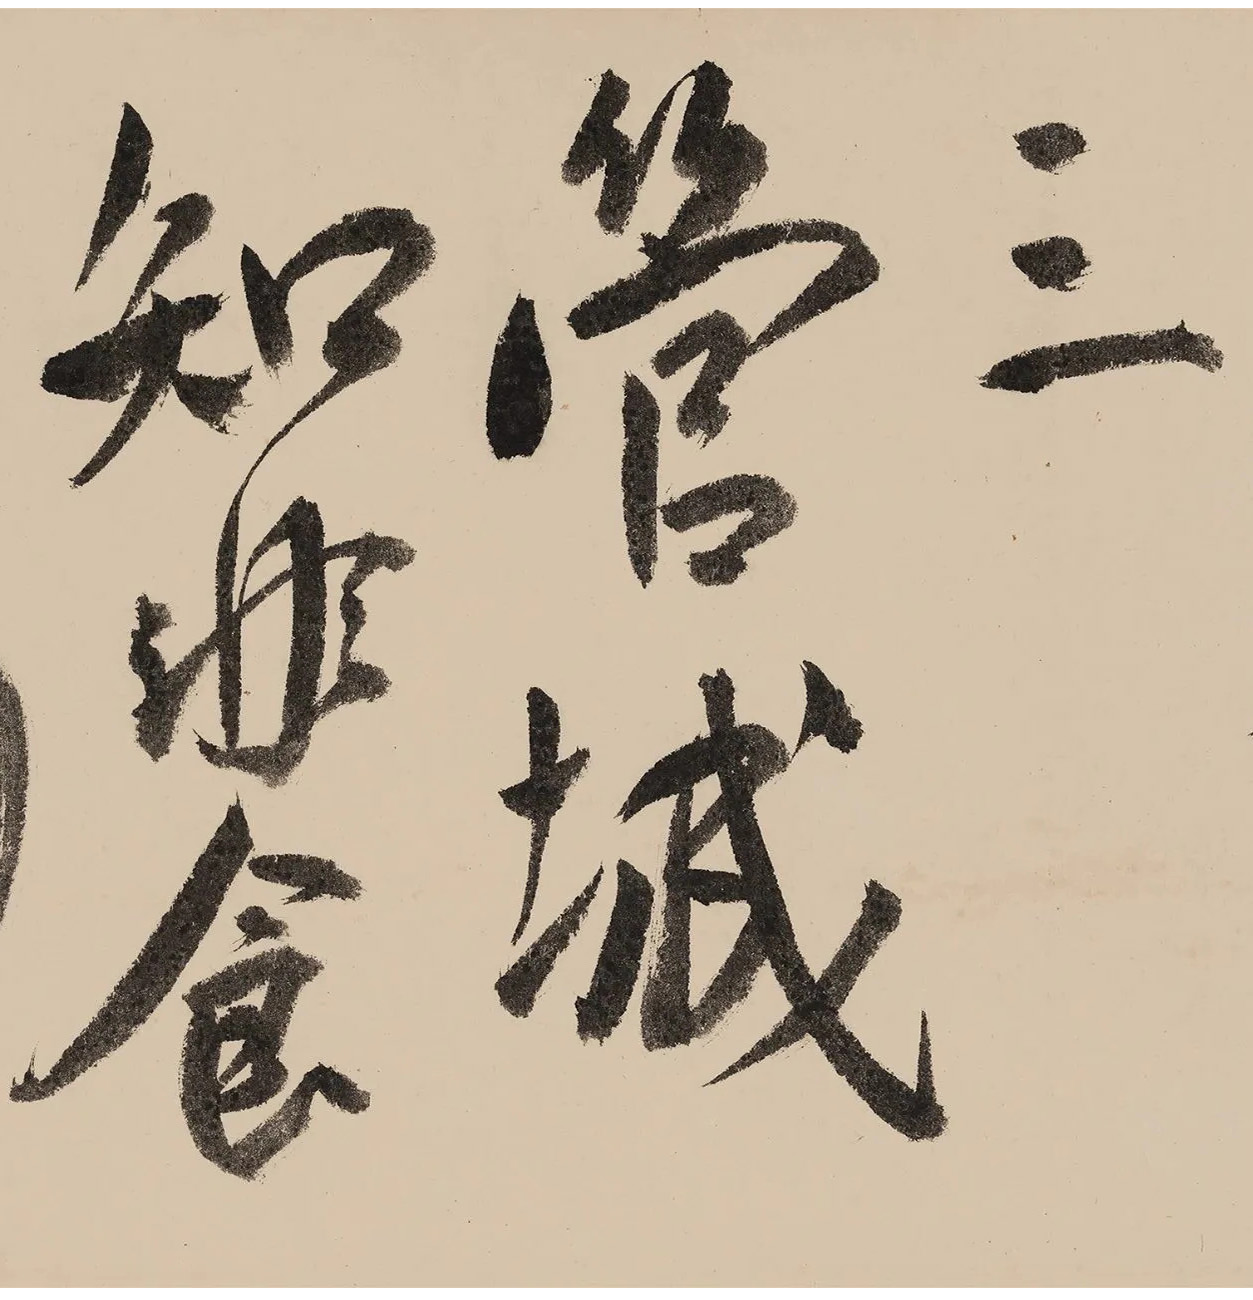 三
管城
知非食